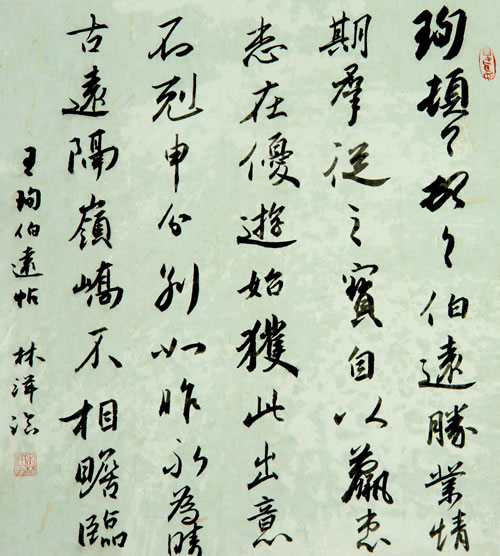 珣頓々首々伯遠勝業情
期羣從之寶自以羸患
志在優遊始獲此出意
不剋申分別如昨永為疇
古遠隔嶺嶠不相瞻臨
王珣伯遠帖
林洋臨